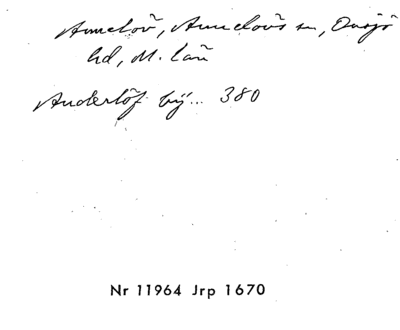 Annelöv, Annelövs sn, Onsjö
hd, M. län
Anderlöf bÿ... 380
Nr 11964 Jrp 1670